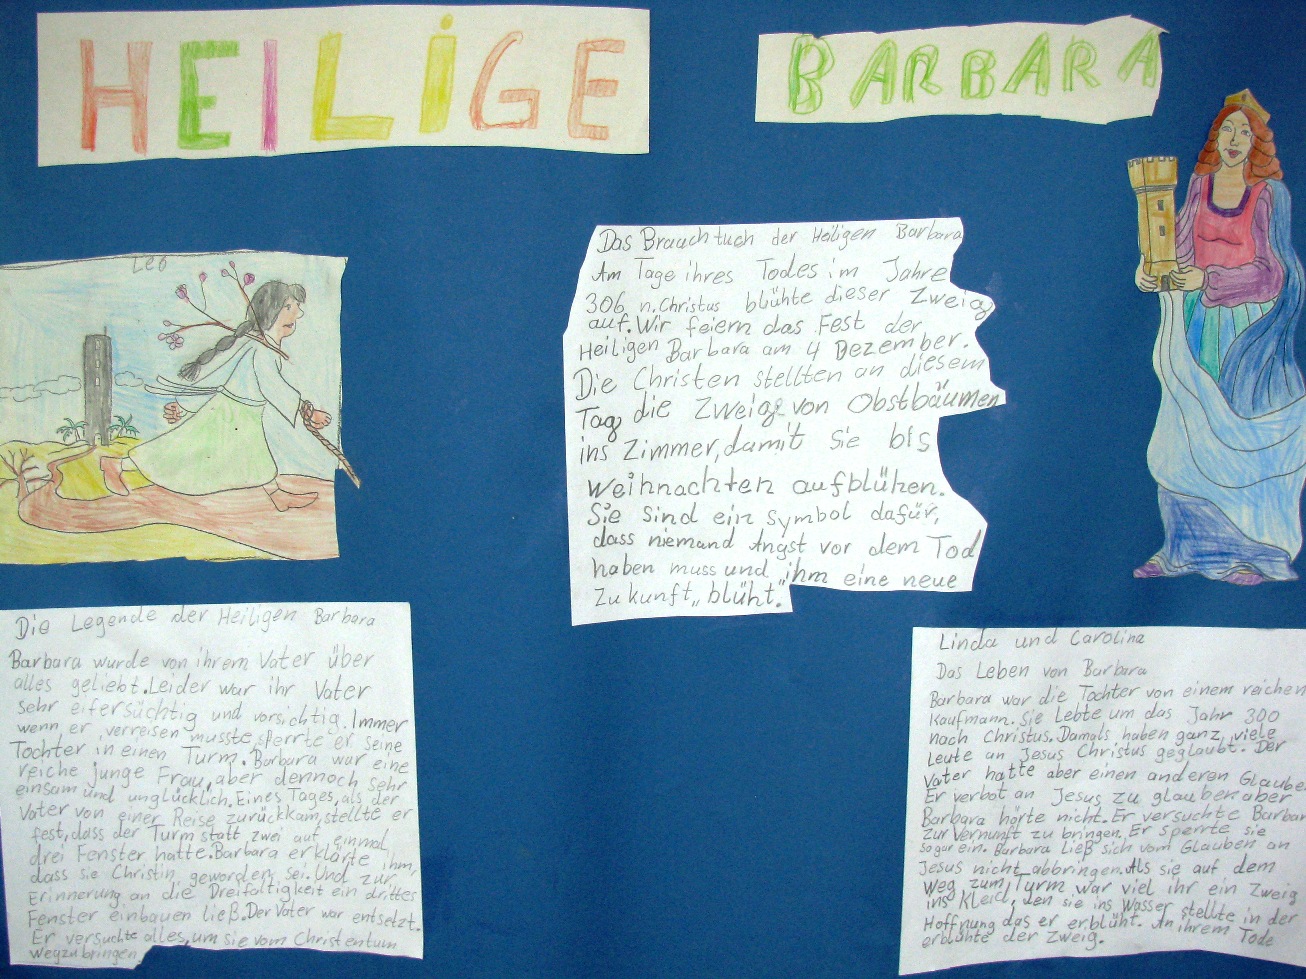 HEILIGE
BARBARA
Leo
Das Brauchtuch der Heiligen Barbara
Am Tage ihres Todes im Jahre
306 n. Christus blühte dieser Zweig
auf. Wir feiern das Fest der
Heiligen Barbara am 4 Dezember.
Die Christen stellten an diesem
Tag die Zweige von Obstbäumen
ins Zimmer, damit Sie bis
Weihnachten aufblühen.
Sie sind ein Symbol dafür,
dass niemand Angst vor dem Tod
haben muss und ihm eine neue
Zukunft „blüht."
Die Legende der Heiligen Barbara
Barbara wurde von ihrem Vater über
alles geliebt. Leider war ihr Vater
sehr eifersüchtig und vorsichtig. Immer
wenn er verreisen musste, sperrte er seine
Tochter in einen Turm. Barbara war eine
reiche junge Frau, aber dennoch sehr
einsam und unglücklich. Eines Tages, als der
Vater von einer Reise zurückkam, stellte er
fest, dass der Turm statt zwei auf einmal
drei Fenster hatte. Barbara erklärte ihm,
dass sie Christin geworden sei. Und zur
Erinnerung an die Dreifaltigkeit ein drittes
Fenster einbauen ließ. Der Vater war entsetzt.
Er versuchte alles, um sie vom Christentum
wegzubringen
Linda und Carolina
Das Leben von Barbara
Barbara war die Tochter von einem reichen
Kaufmann. Sie lebte um das Jahr 300
nach Christus. Damals haben ganz viele
Leute an Jesus Christus geglaubt. Der
Vater hatte aber einen anderen Glauben
Er verbot an Jesus zu glauben aber
Barbara hörte nicht. Er versuchte Barbar
zur Vernunft zu bringen. Er sperrte sie
sogar ein. Barbara ließ sich vom Glauben an
Jesus nicht abbringen. Als sie auf dem
Weg zum Turm war viel ihr ein Zweig
ins Kleid, den sie ins Wasser stellte in der
Hoffnung das er erblüht. An ihrem Tode
erblühte der Zweig.